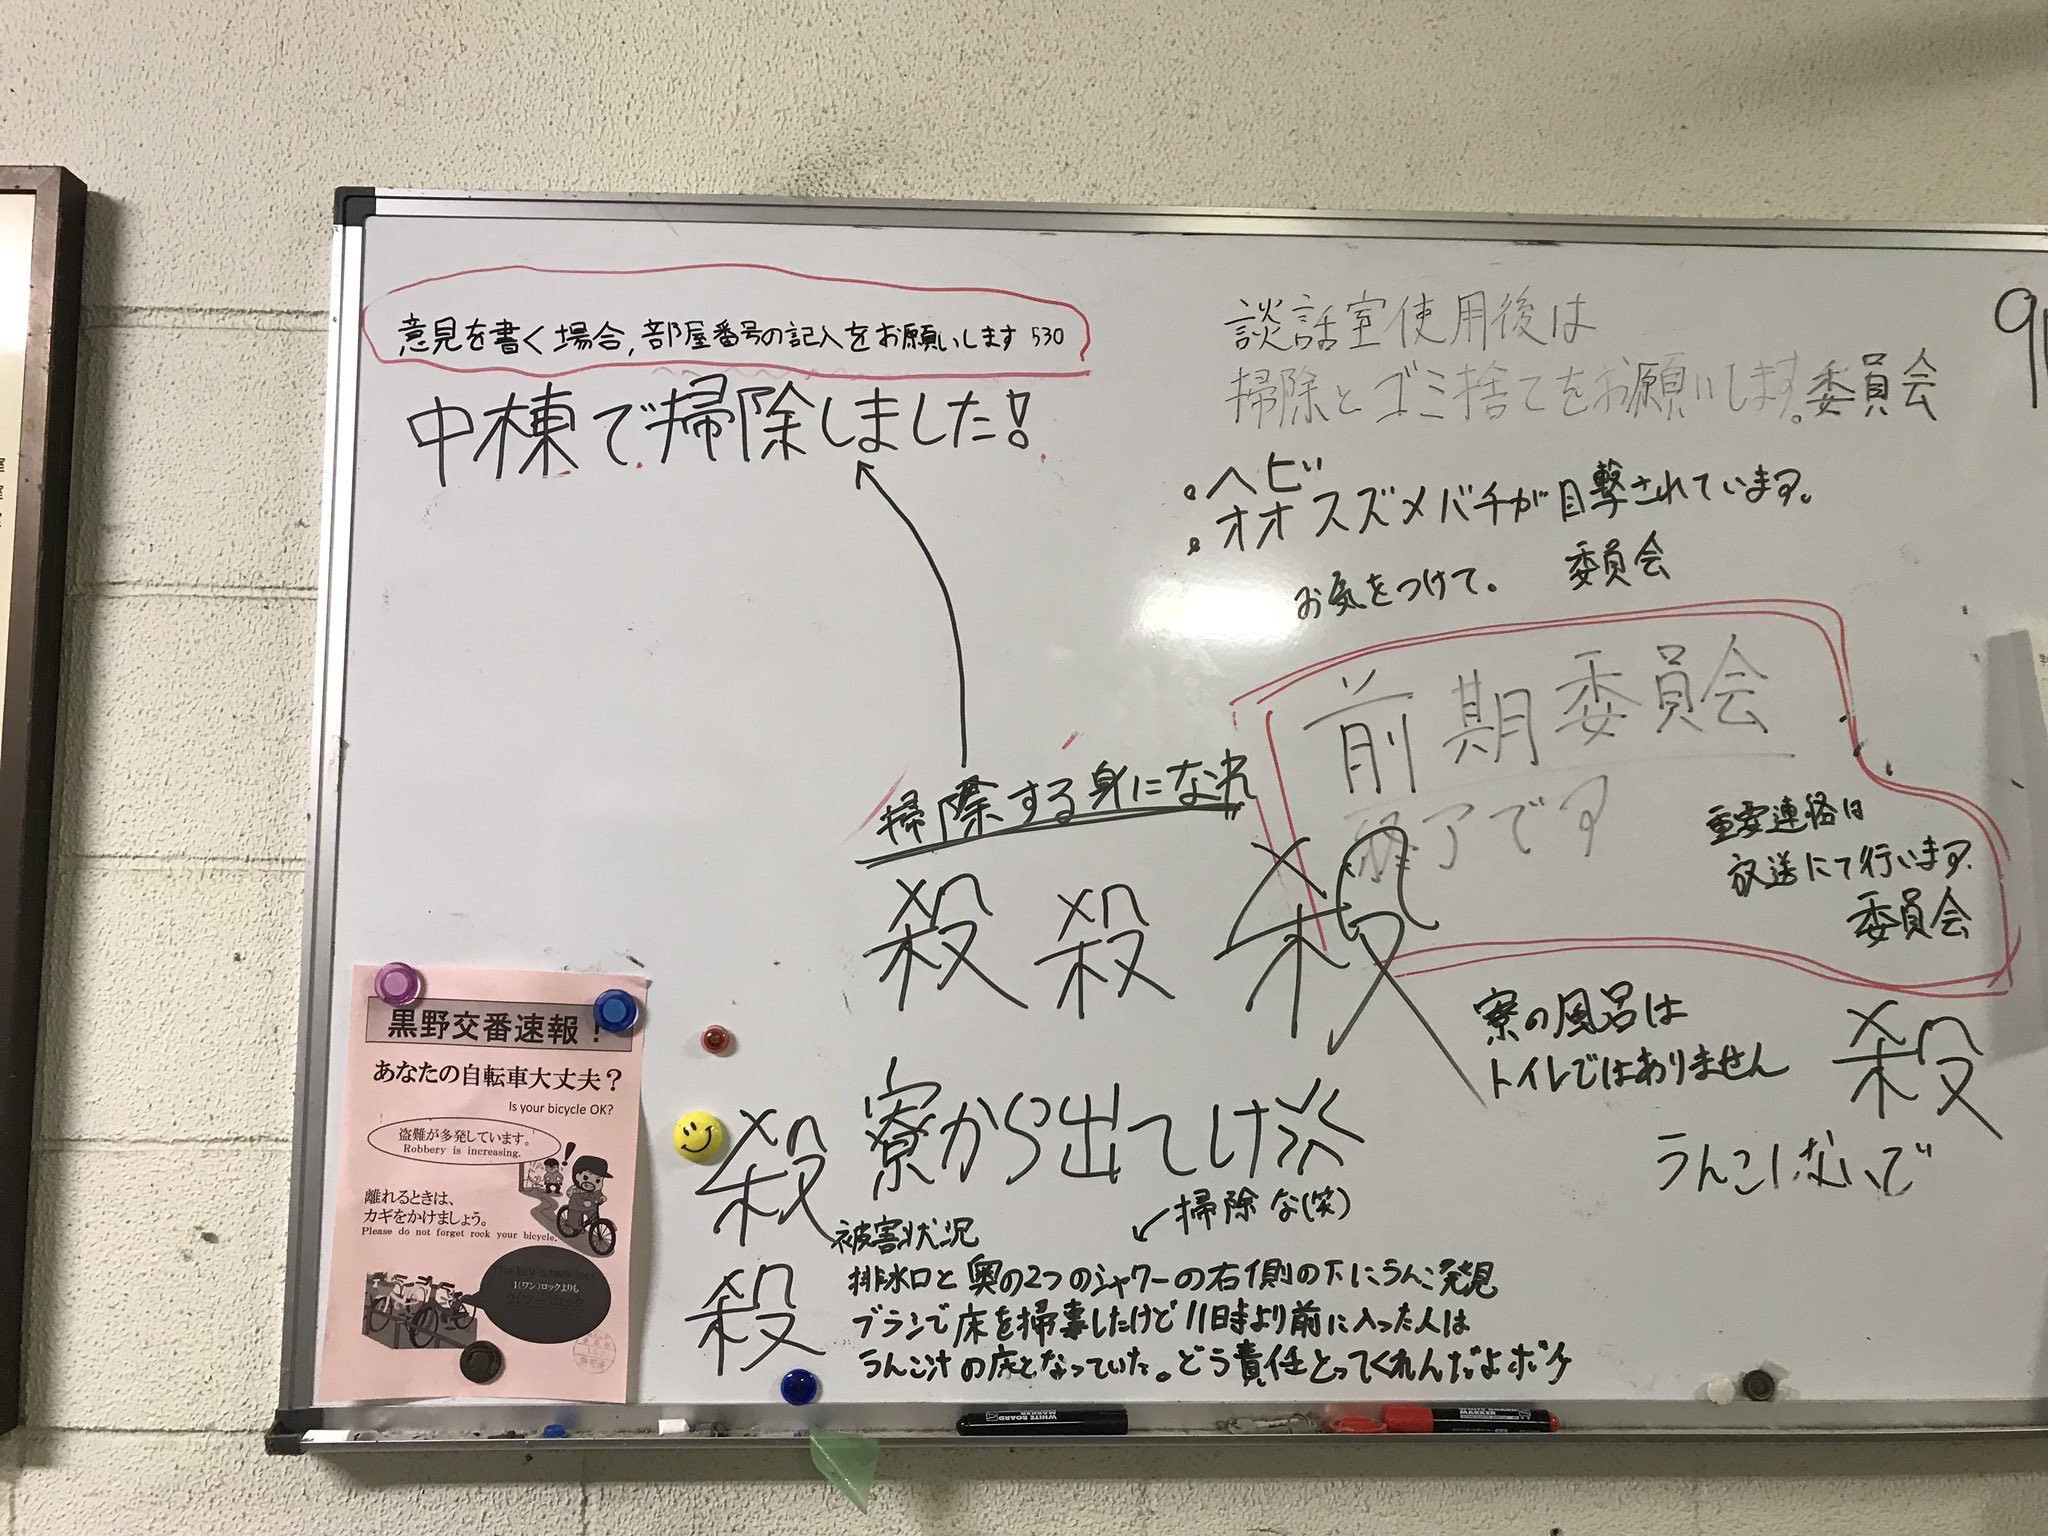 意見を書く場合,部屋番号の記入をお願いします 530
中棟で掃除しました!
談話室使用後は
掃除とゴミ捨てをお願いします。委員会
・ヘビ
・オオスズメバチが目撃されています。
お気をつけて。 委員会
前期委員会
終了です
重要連絡は
放送にて行います。
委員会
掃除する身になれ
殺 殺 殺
寮の風呂は
トイレではありません
殺
うんこしないで
殺
寮から出てけ
掃除な(笑)
殺
被害状況
排水口と奥の2つのシャワーの右側の下にうんこ発見
ブラシで床を掃事したけど11時より前に入った人は
うんこ汁の床となっていた。どう責任とってくれんだよボケ
黒野交番速報!
あなたの自転車大丈夫?
Is your bicycle OK?
盗難が多発しています。
Robbery is increasing.
離れるときは、
カギをかけましょう。
Please do not forget rock your bicycle.
The key is two lock
1(ワン)ロックよりも
2(ツー)ロック
WHITE BOARD
MARKER
WHITE BOARD
MARKER